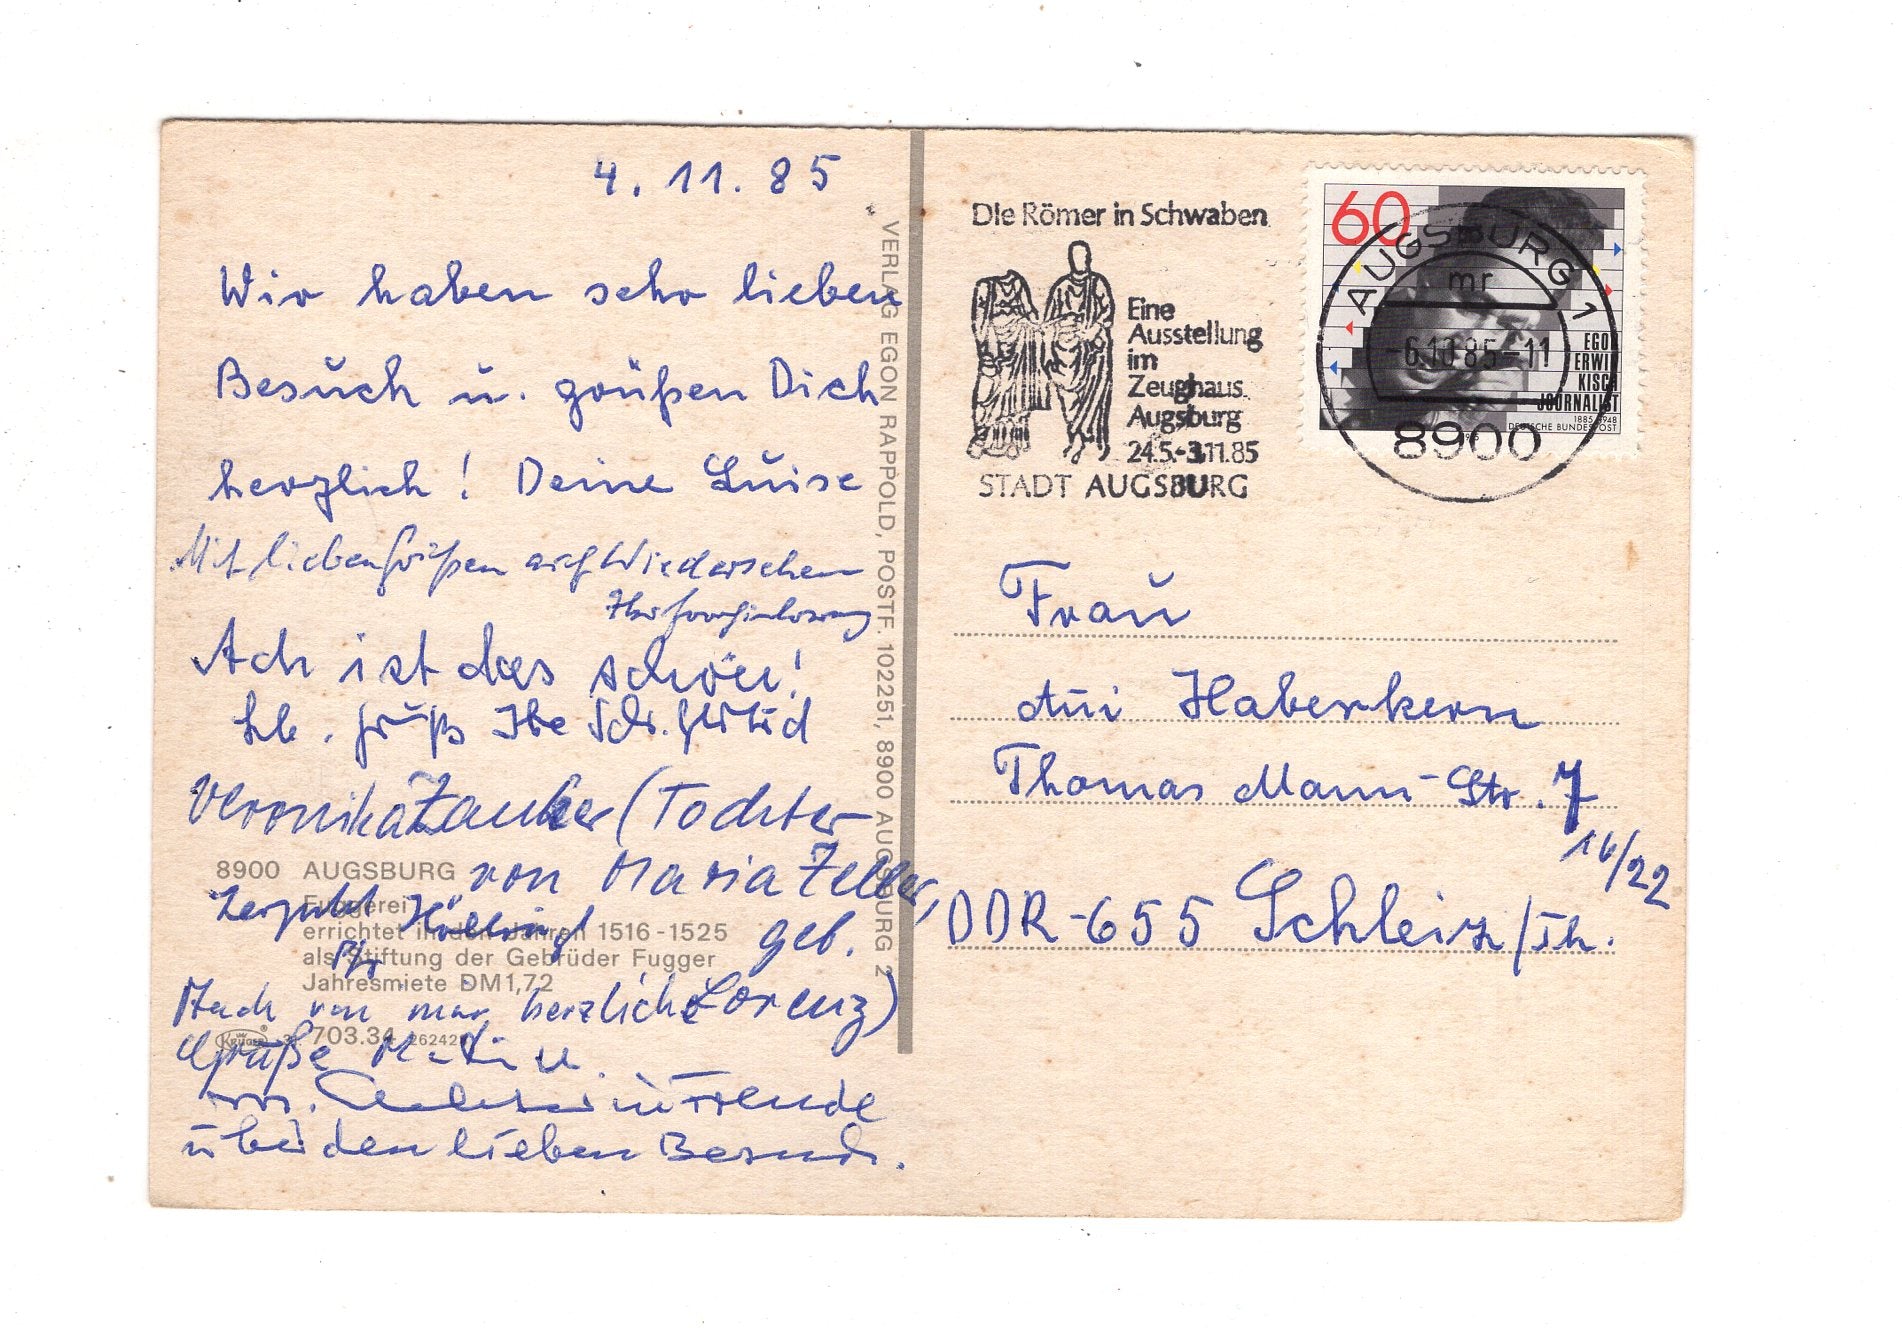 4. 11. 85
Wir haben sehr lieben
Besuch u. grüßen Dich
herzlich! Deine Luise
Mit lieben Grüßen auf Wiedersehen
Ach ist das schön!
Lb. Grüß Ihe Schr. Gertrud
Veronika (Tochter
von Maria Zeller,
geb.
Lorenz)
Auch von mir herzliche
Grüße
in Freude
über den lieben Besuch.
8900 AUGSBURG
Fuggerei
errichtet in den Jahren 1516-1525
als Stiftung der Gebrüder Fugger
Jahresmiete DM 1,72
KRÜGER
703.34
VERLAG EGON RAPPOLD, POSTF. 102251, 8900 AUGSBURG 2
Die Römer in Schwaben
Eine
Ausstellung
im
Zeughaus
Augsburg
24.5.-3.11.85
STADT AUGSBURG
60
EGON
ERWIN
KISCH
JOURNALIST
1885-1948
DEUTSCHE BUNDESPOST
AUGSBURG 1
mr
-6.10.85-11
8900
Frau
Haberkern
Thomas Mann-Str. 7
16/22
DDR-655 Schleiz/Th.